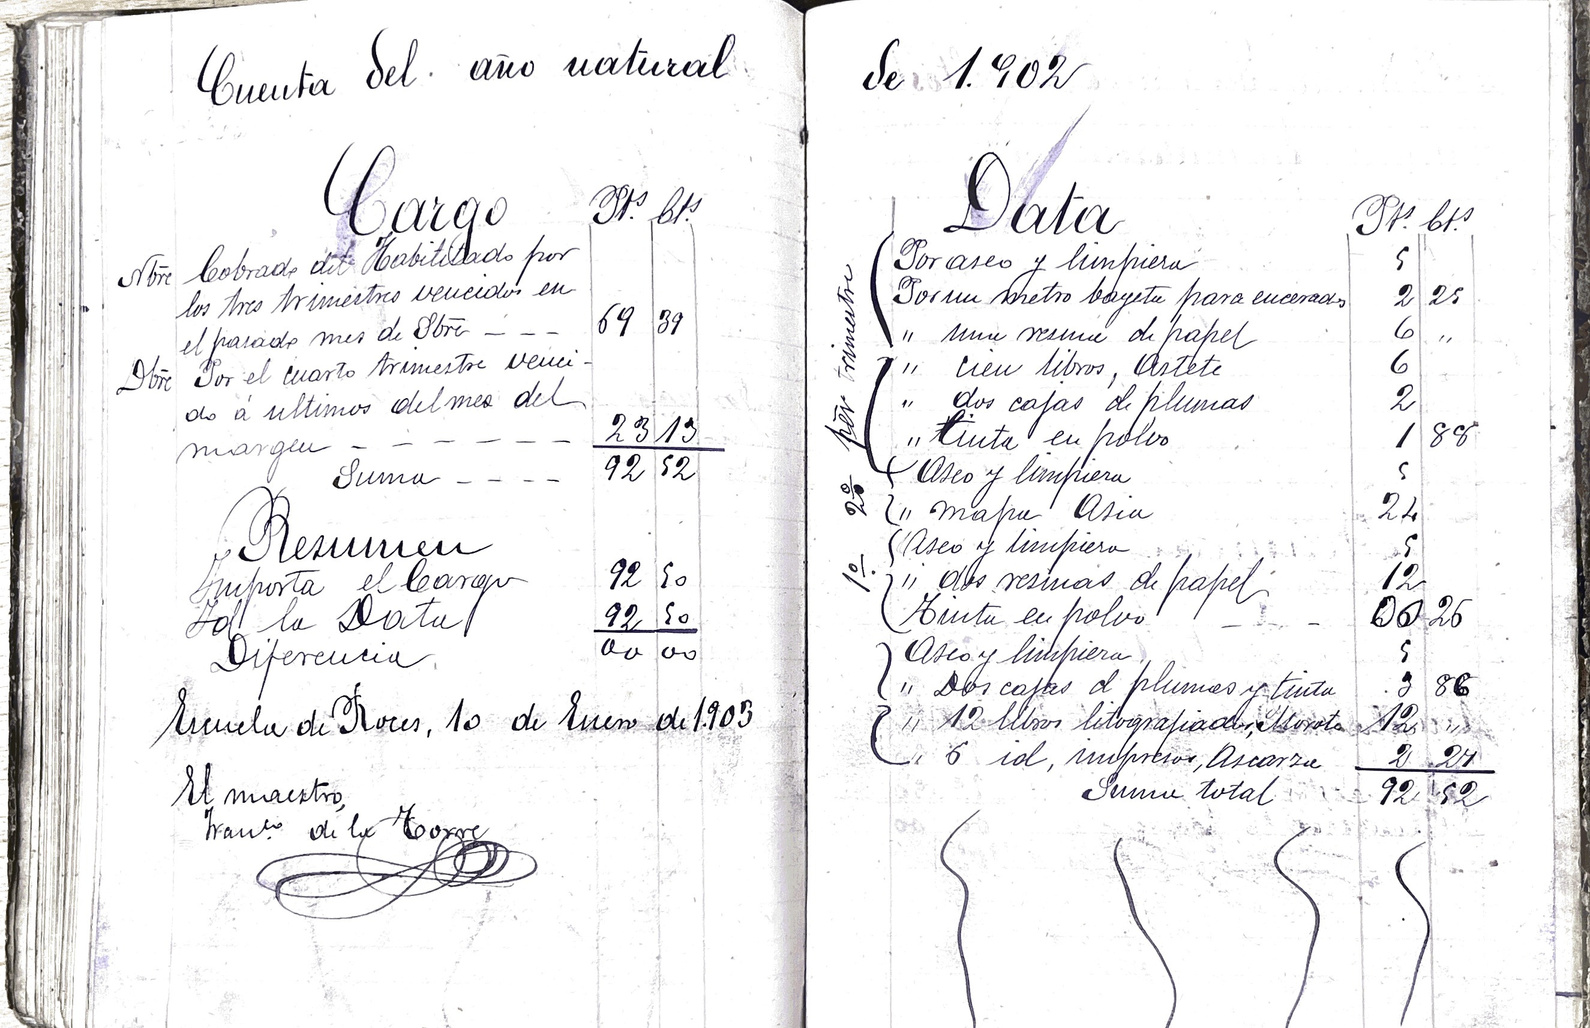 Cuenta del año natural
Cargo
Pts Cts
Nbre Cobrado del Habilitado por
los tres trimestres vencidos en
el pasado mes de Sbre - - - 69 39
Dbre Por el cuarto trimestre venci-
do á ultimos del mes del
margen - - - - - - - 23 13
Suma - - - - 92 52
Resumen
Importa el Cargo 92 50
Id la Data 92 50
Diferencia 00 00
Escuela de Roces, 10 de Enero de 1.903
El maestro,
Franco de la Torre
de 1.902
Data
Pts Cts
per trimestre
Por aseo y limpiera 5
Por un metro bayeta para encerados 2 25
" una resma de papel 6 "
" cien libros, Astete 6
" dos cajas de plumas 2
" tinta en polvo 1 88
2º
Aseo y limpiera 5
" mapa Asia 24
1º
Aseo y limpiera 5
" dos resmas de papel 12
Tinta en polvo - - - - 00 25
Aseo y limpiera 5
" Dos cajas d plumas y tinta 3 86
" 12 libros litografiados, 12 "
" 6 id, impresos, Ascarza 2 24
Suma total 92 52